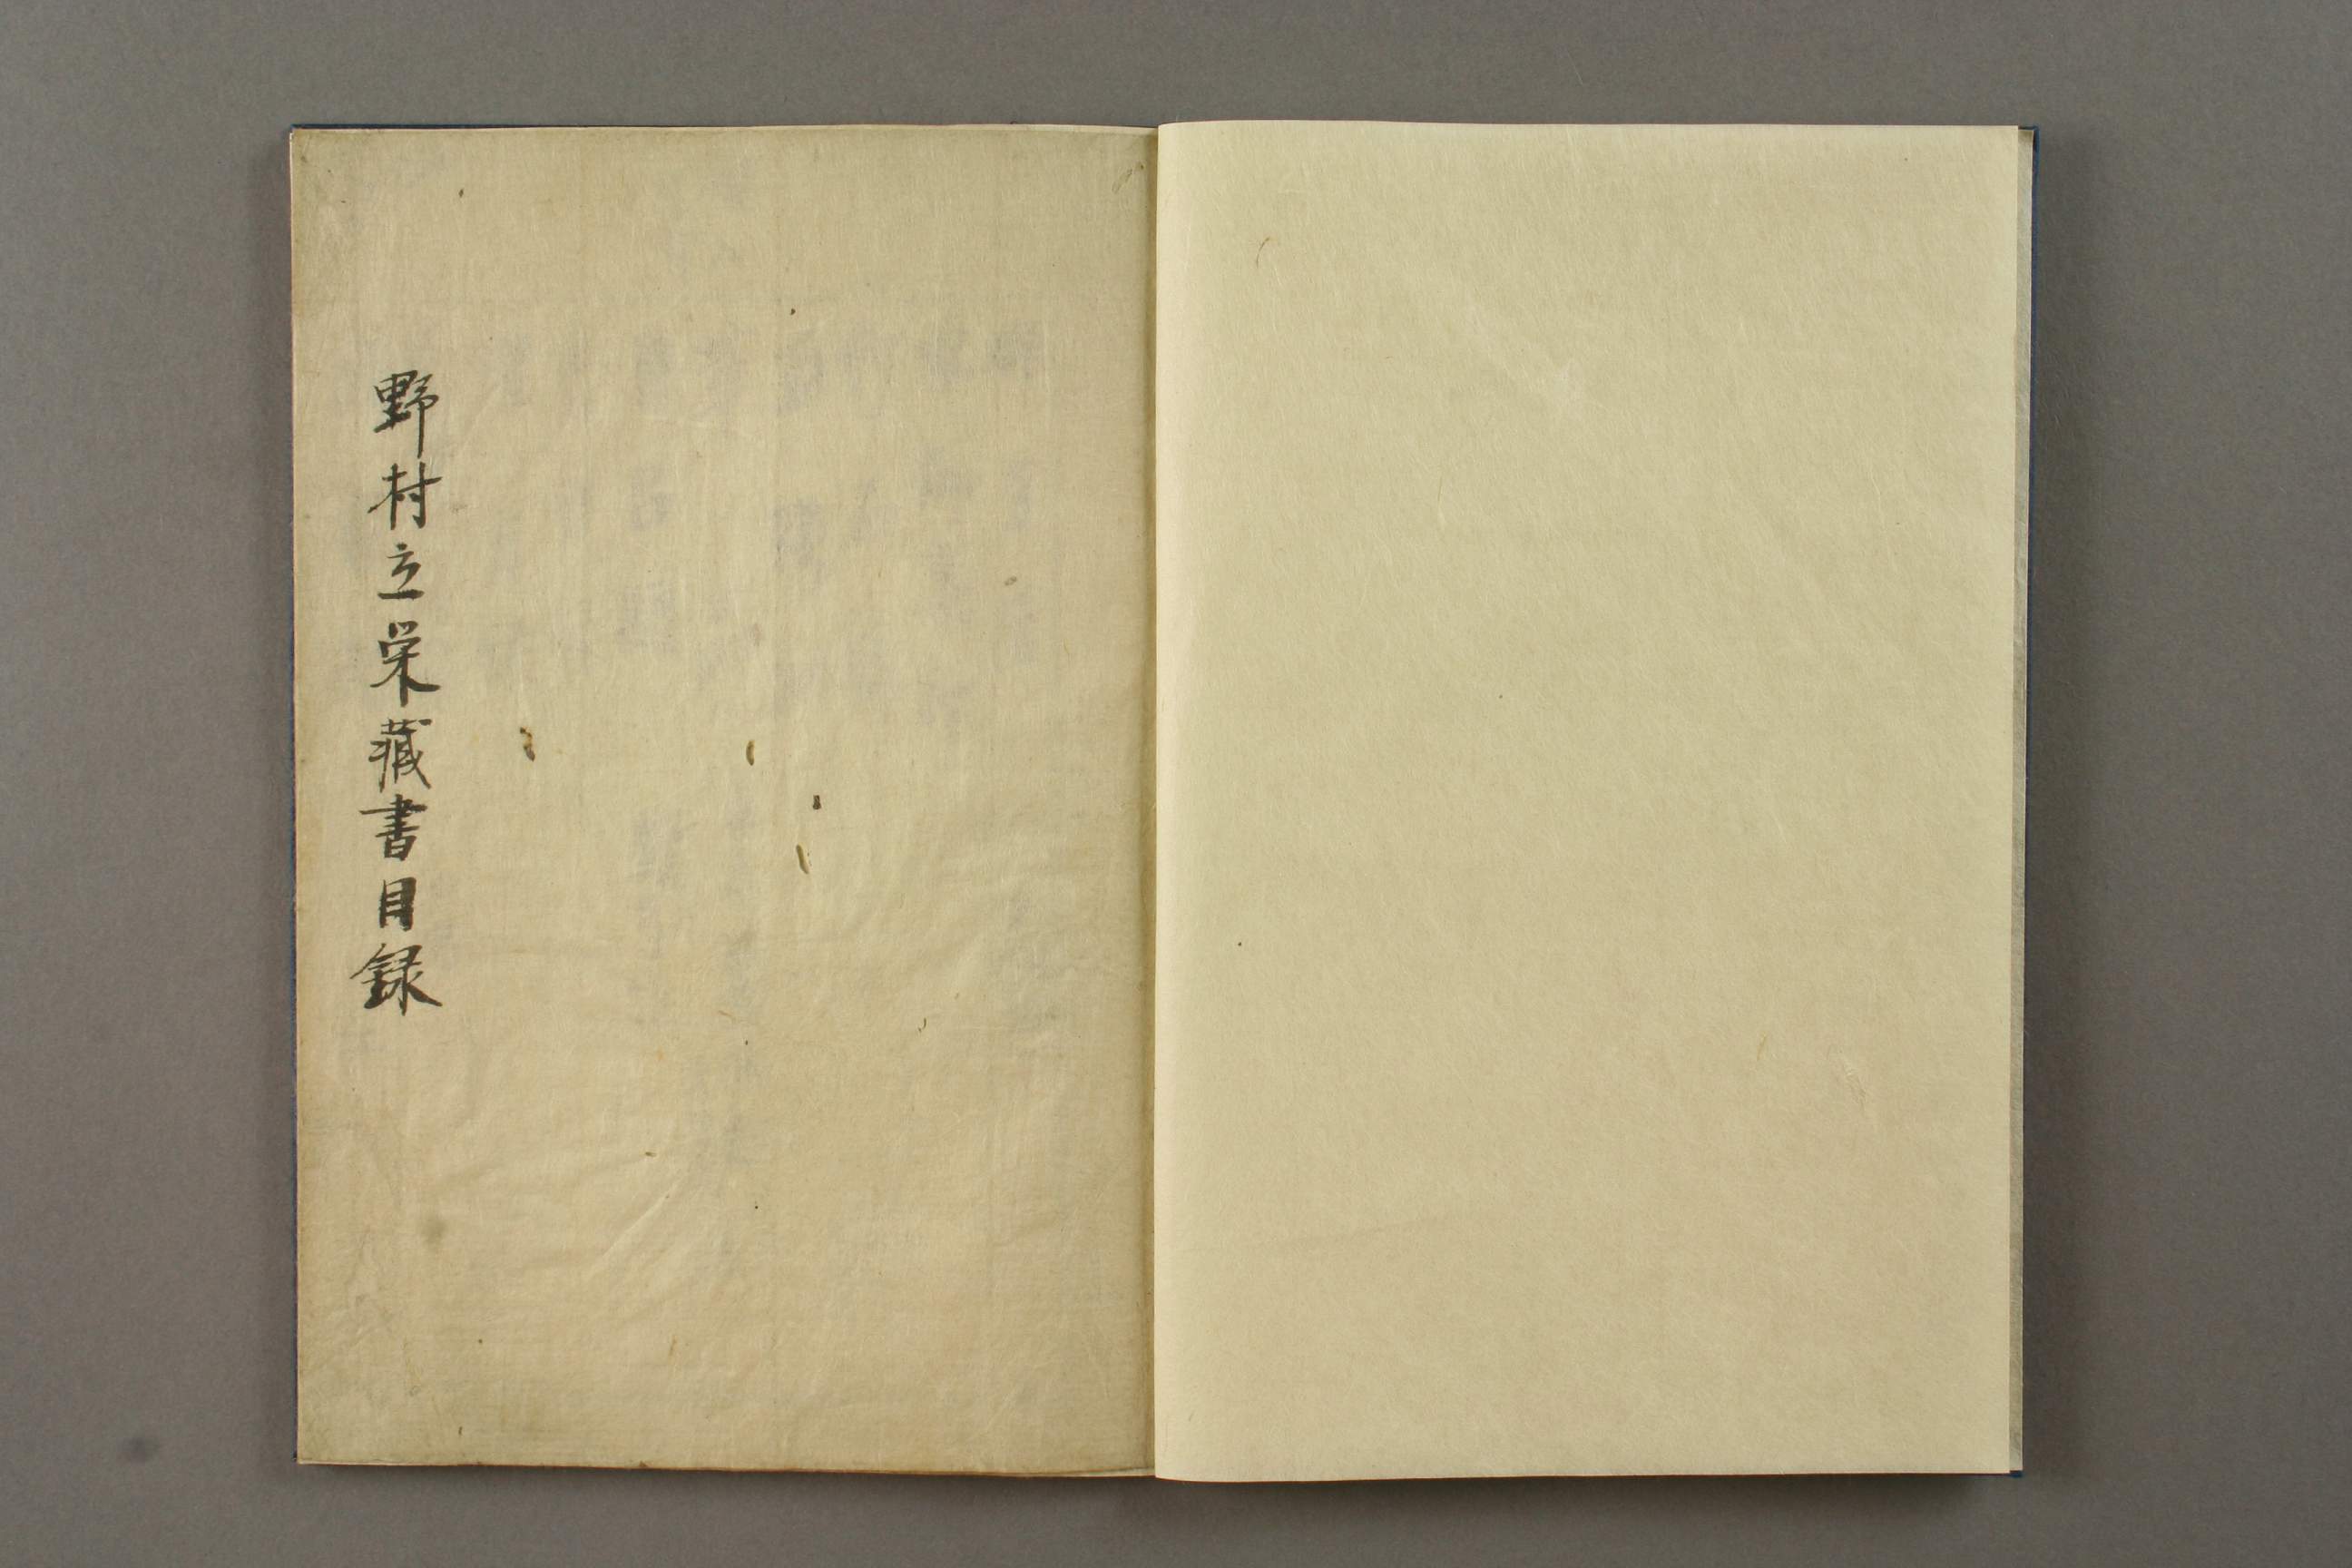 野村立栄藏書目録